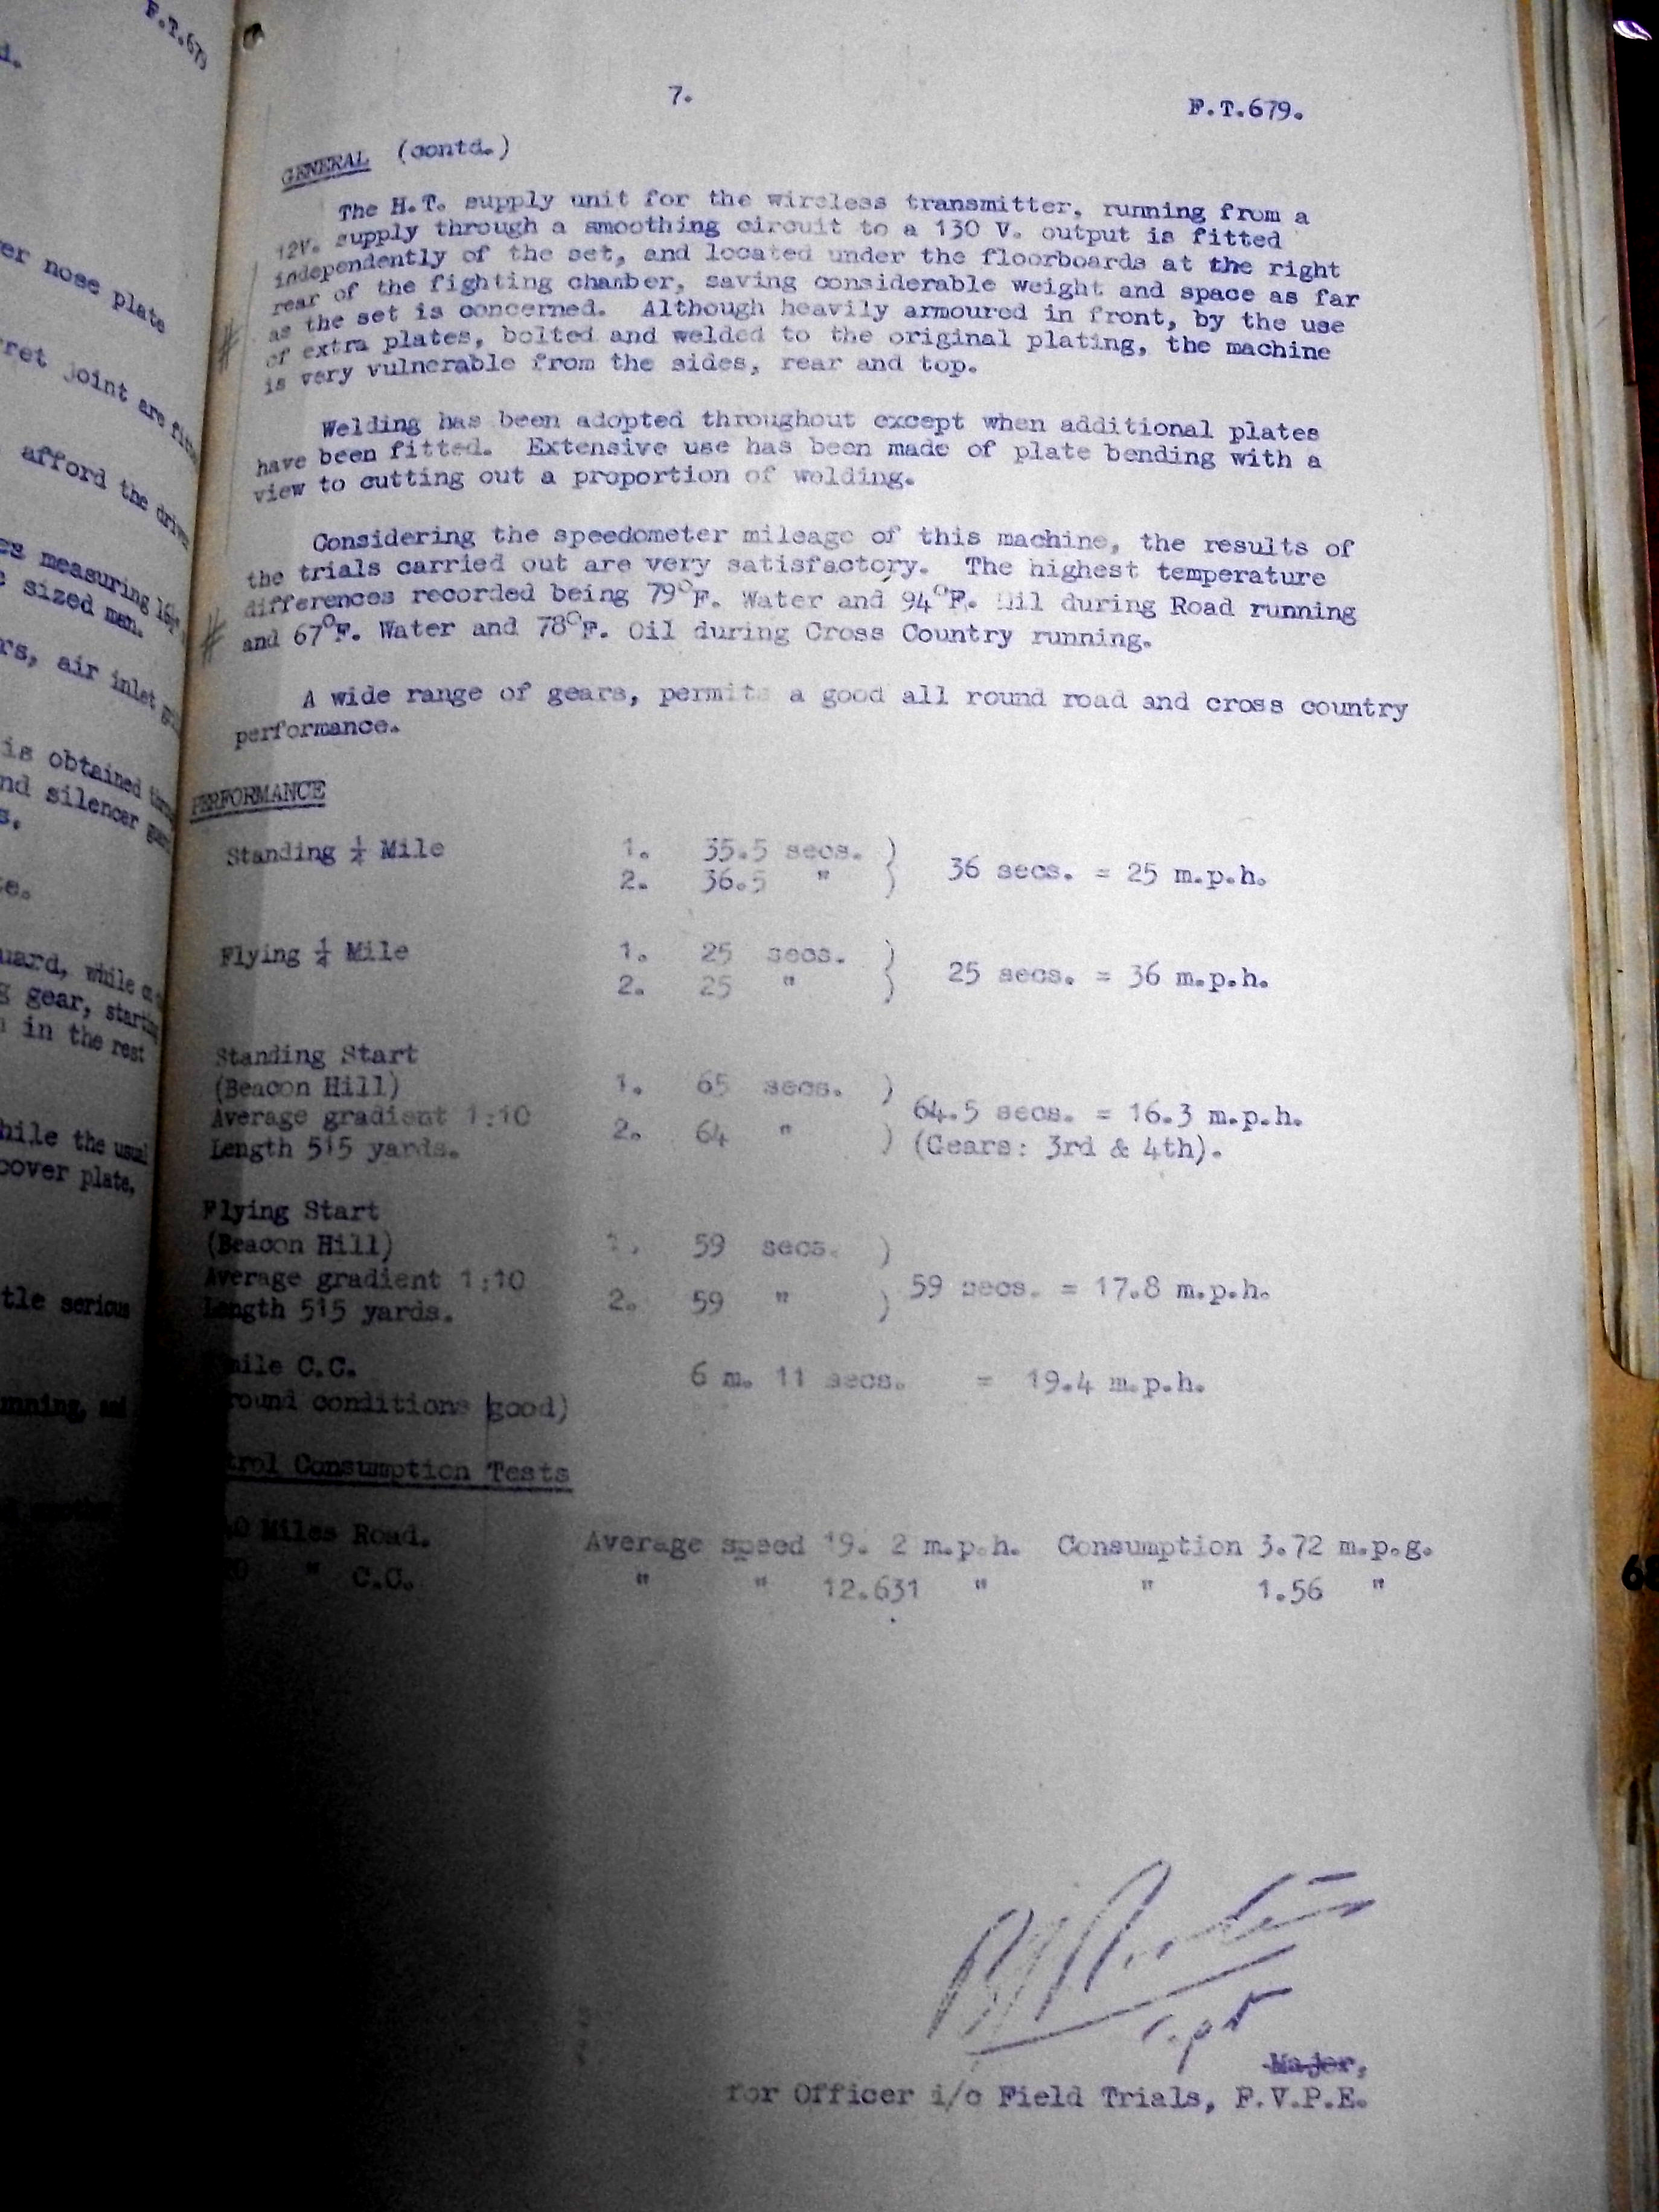 F.T.679
d.
er nose plate
ret joint are
afford the
es measuring
sized man.
rs, air inlet
is obtained
nd silencer
s.
te.
uard, while
gear, starting
in the rest
hile the usual
cover plate,
tle serious
7.
F.T.679.
GENERAL (contd.)
The H.T. supply unit for the wireless transmitter, running from a
12V. supply through a smoothing circuit to a 130 V. output is fitted
independently of the set, and located under the floorboards at the right
rear of the fighting chamber, saving considerable weight and space as far
as the set is concerned. Although heavily armoured in front, by the use
of extra plates, bolted and welded to the original plating, the machine
is very vulnerable from the sides, rear and top.
Welding has been adopted throughout except when additional plates
have been fitted. Extensive use has been made of plate bending with a
view to cutting out a proportion of welding.
Considering the speedometer mileage of this machine, the results of
the trials carried out are very satisfactory. The highest temperature
differences recorded being 79°F. Water and 94°F. Oil during Road running
and 67°F. Water and 78°F. Oil during Cross Country running.
A wide range of gears, permits a good all round road and cross country
performance.
PERFORMANCE
Standing ¼ Mile 1. 35.5 secs. )
2. 36.5 " ) 36 secs. = 25 m.p.h.
Flying ¼ Mile 1. 25 secs. )
2. 25 " ) 25 secs. = 36 m.p.h.
Standing Start
(Beacon Hill) 1. 65 secs. )
Average gradient 1:10 64.5 secs. = 16.3 m.p.h.
Length 515 yards. 2. 64 " ) (Gears: 3rd & 4th).
Flying Start
(Beacon Hill) 1. 59 secs. )
Average gradient 1:10 59 secs. = 17.8 m.p.h.
Length 515 yards. 2. 59 " )
mile C.C. 6 m. 11 secs. = 19.4 m.p.h.
round conditions good)
trol Consumption Tests
0 Miles Road. Average speed 19. 2 m.p.h. Consumption 3.72 m.p.g.
0 " C.C. " " 12.631 " " 1.56 "
Capt
Major,
for Officer i/c Field Trials, F.V.P.E.
68